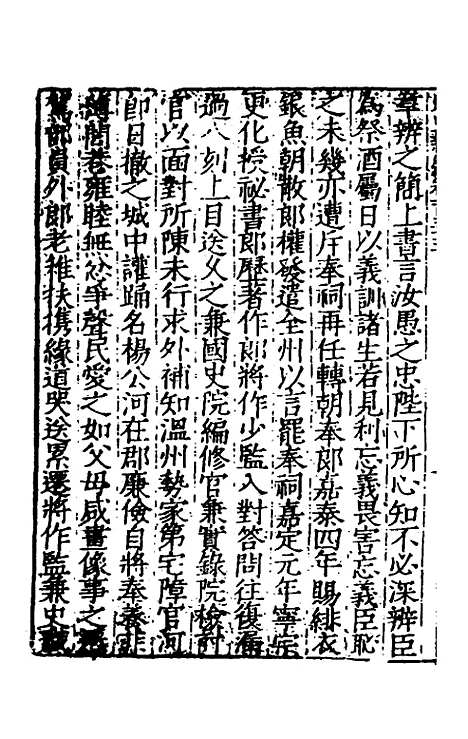 章辨之簡上書言汝愚之忠陛下所心知不必深辨臣
為祭酒屬日以義訓諸生若見利忘義畏害忘義臣恥
之未幾亦遭斥奉祠再任轉朝奉郎嘉泰四年賜緋衣
銀魚朝散郎權發遣全州以言罷奉祠嘉定元年寧宗
更化授祕書郎歷著作郎將作少監入對答問往復
過八刻上目送久之兼國史院編修官兼實錄院檢討
官以面對所陳未行求外補知溫州勢家第宅障官河
即日撤之城中讙踊名楊公河在郡廉儉自將奉養菲
薄閭巷雍睦無忿爭聲民愛之如父母咸畫像事之遷
駕部員外郎老稚扶攜緣道哭送累遷將作監兼史